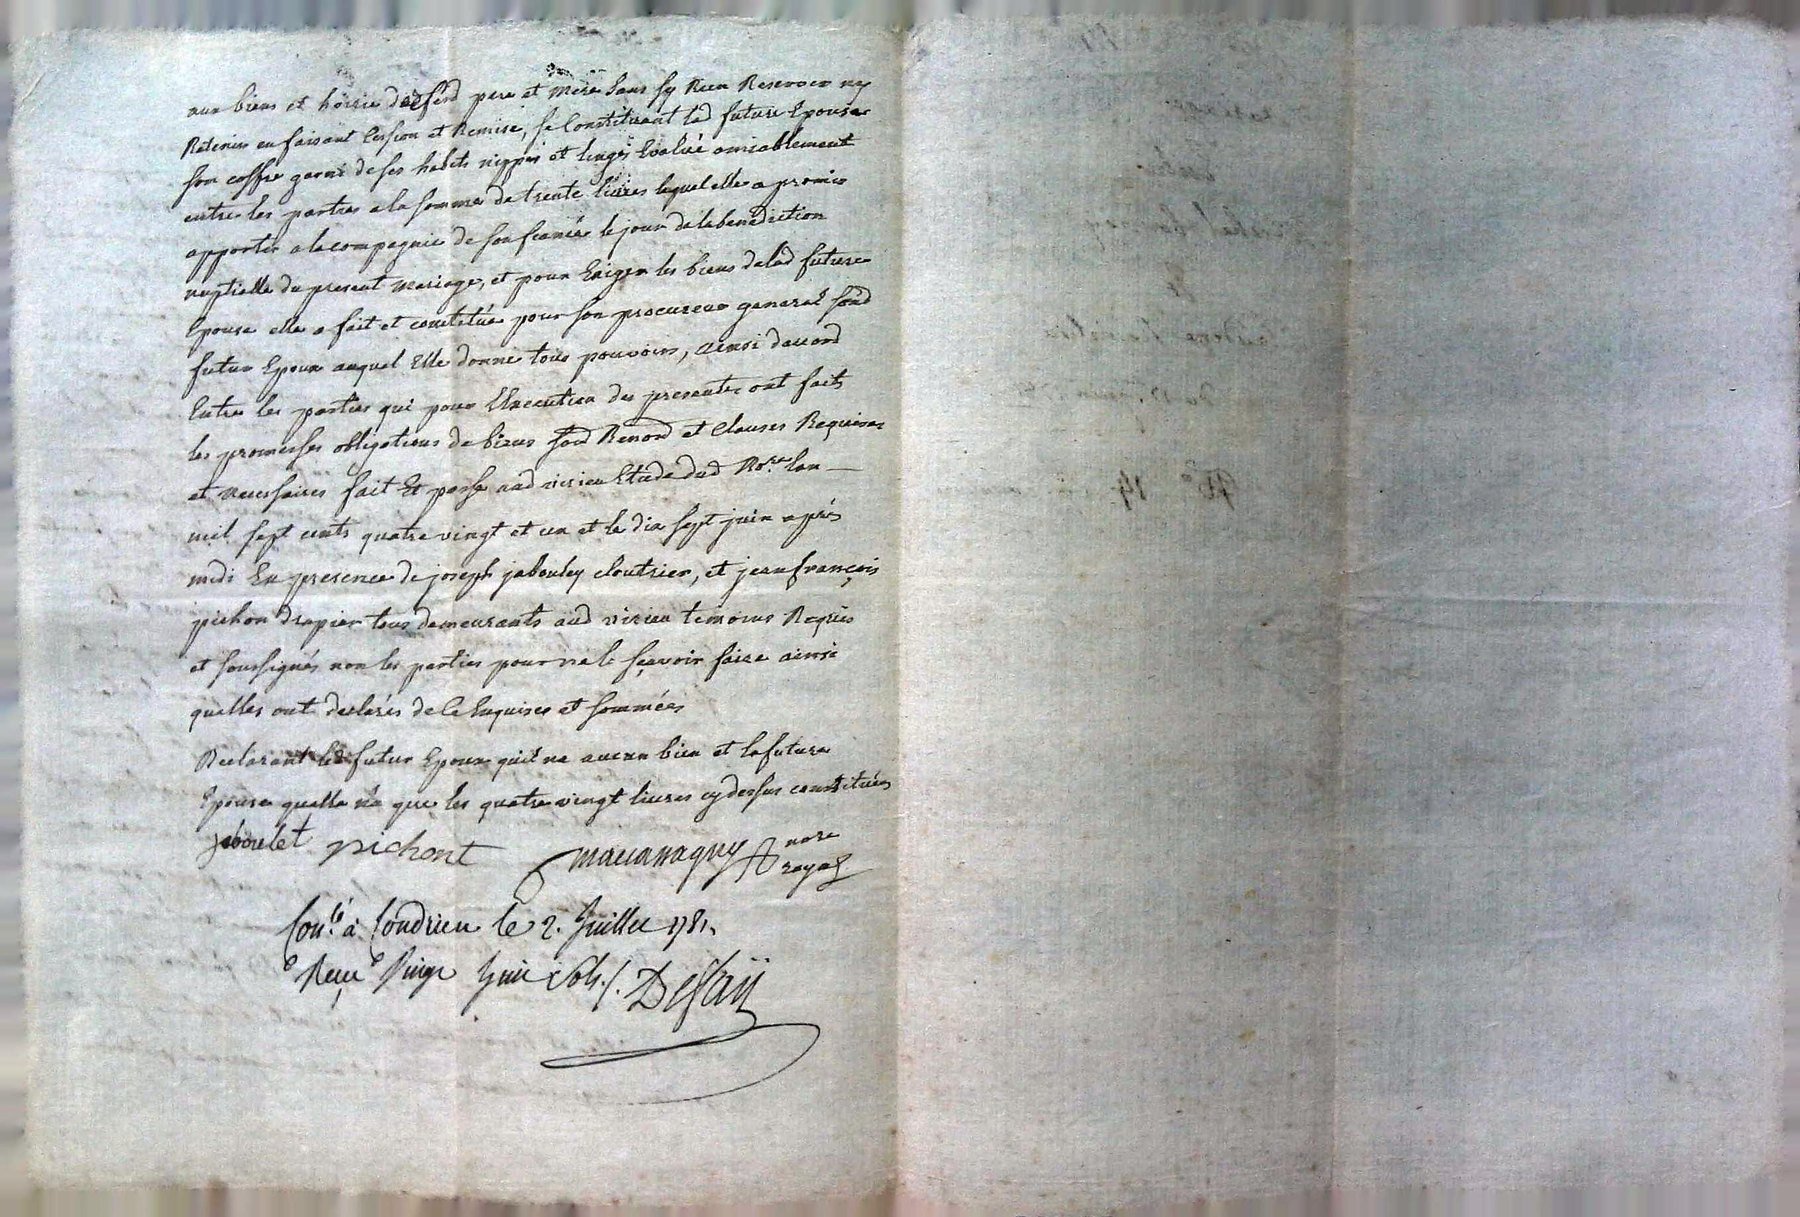 aux biens et hoirie desd pere et mere sans sy Rien Reserver ny
Retenir en faisant Cession et Remise, se Constituant lad future Epouse
son coffre garni de ses habits nippes et linges Evalué amiablement
entre les parties a la somme de trente livres lequel elle a promis
apporter a la compagnie de son fiancé le jour de la benediction
nuptialle du present mariage, et pour Exiger les biens de lad future
Epouse elle a fait et constitué pour son procureur general sond
futur Epoux auquel Elle donne tous pouvoirs, ainsi d'accord
Entre les parties qui pour L'Execution des presentes ont faits
les promesses obligations de biens soud Renond et Clauses Requises
et necessaires fait Et passé aud virieu Etude dud No.re lan
mil sept cents quatre vingt et un et le dix sept juin après
midi En presence de joseph jabouley cloutrier, et jean françois
pichon drapier tous demeurants aud virieu temoins Requis
et soussignés non les parties pour ne le sçavoir faire ainsi
quelles ont declarés de ce Enquises et sommées
Declarant le futur Epoux quil na aucun bien et la future
Epouse quelle na que les quatre vingt livres cy dessus constitués
jaboulet pichont maccanagny nore
royal
Con.lé à Condrieu le 2. Juillet 1781.
Reçu Vingt huit sols ./. Dessaÿ